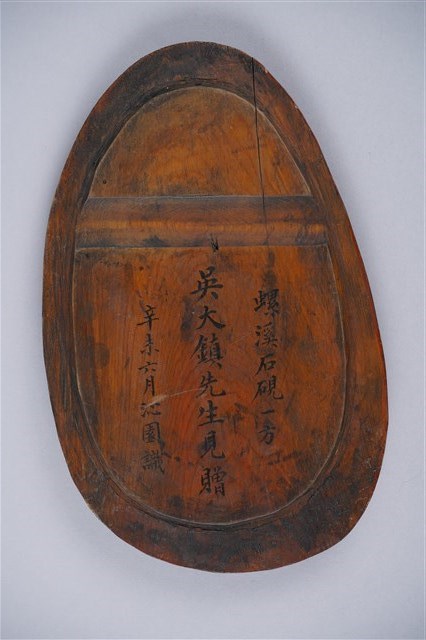 螺溪石硯一方
吳大鎮先生見贈
辛未六月沁園識